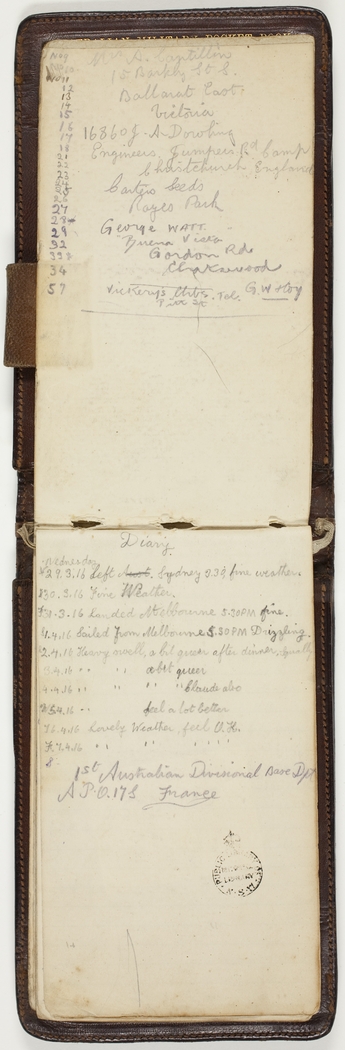 Mrs A. Cantillon
15 Barkly St E.
Ballarat East
Victoria
16860 J. A. Dowling
Engineers Jumpers Rd Camp
Christchurch England
Carters Seeds
Raynes Park
George Watt.
Buena Vista
Gordon Rd
Chatswood
Vickerys Chbs. Tel. G.W. Hoy
Pitt St
11
12
13
14
15
16
17
18
21
22
23
27
28
29
32
33
34
57
Diary
Wednesday
29.3.16 Left Sydney 9.30 fine weather.
30.3.16 Fine Weather.
31.3.16 Landed Melbourne 5.30PM fine.
1.4.16 Sailed from Melbourne 5.30PM Drizzling.
2.4.16 Heavy swell, a bit queer after dinner,
3.4.16 " " " a bit queer
4.4.16 " " " " Claude also
5.4.16 " " feel a lot better
6.4.16 Lovely Weather, feel O.K.
7.4.16 " " " " "
8
1st Australian Divisional Base Dpt
A.P.O. 17 S France